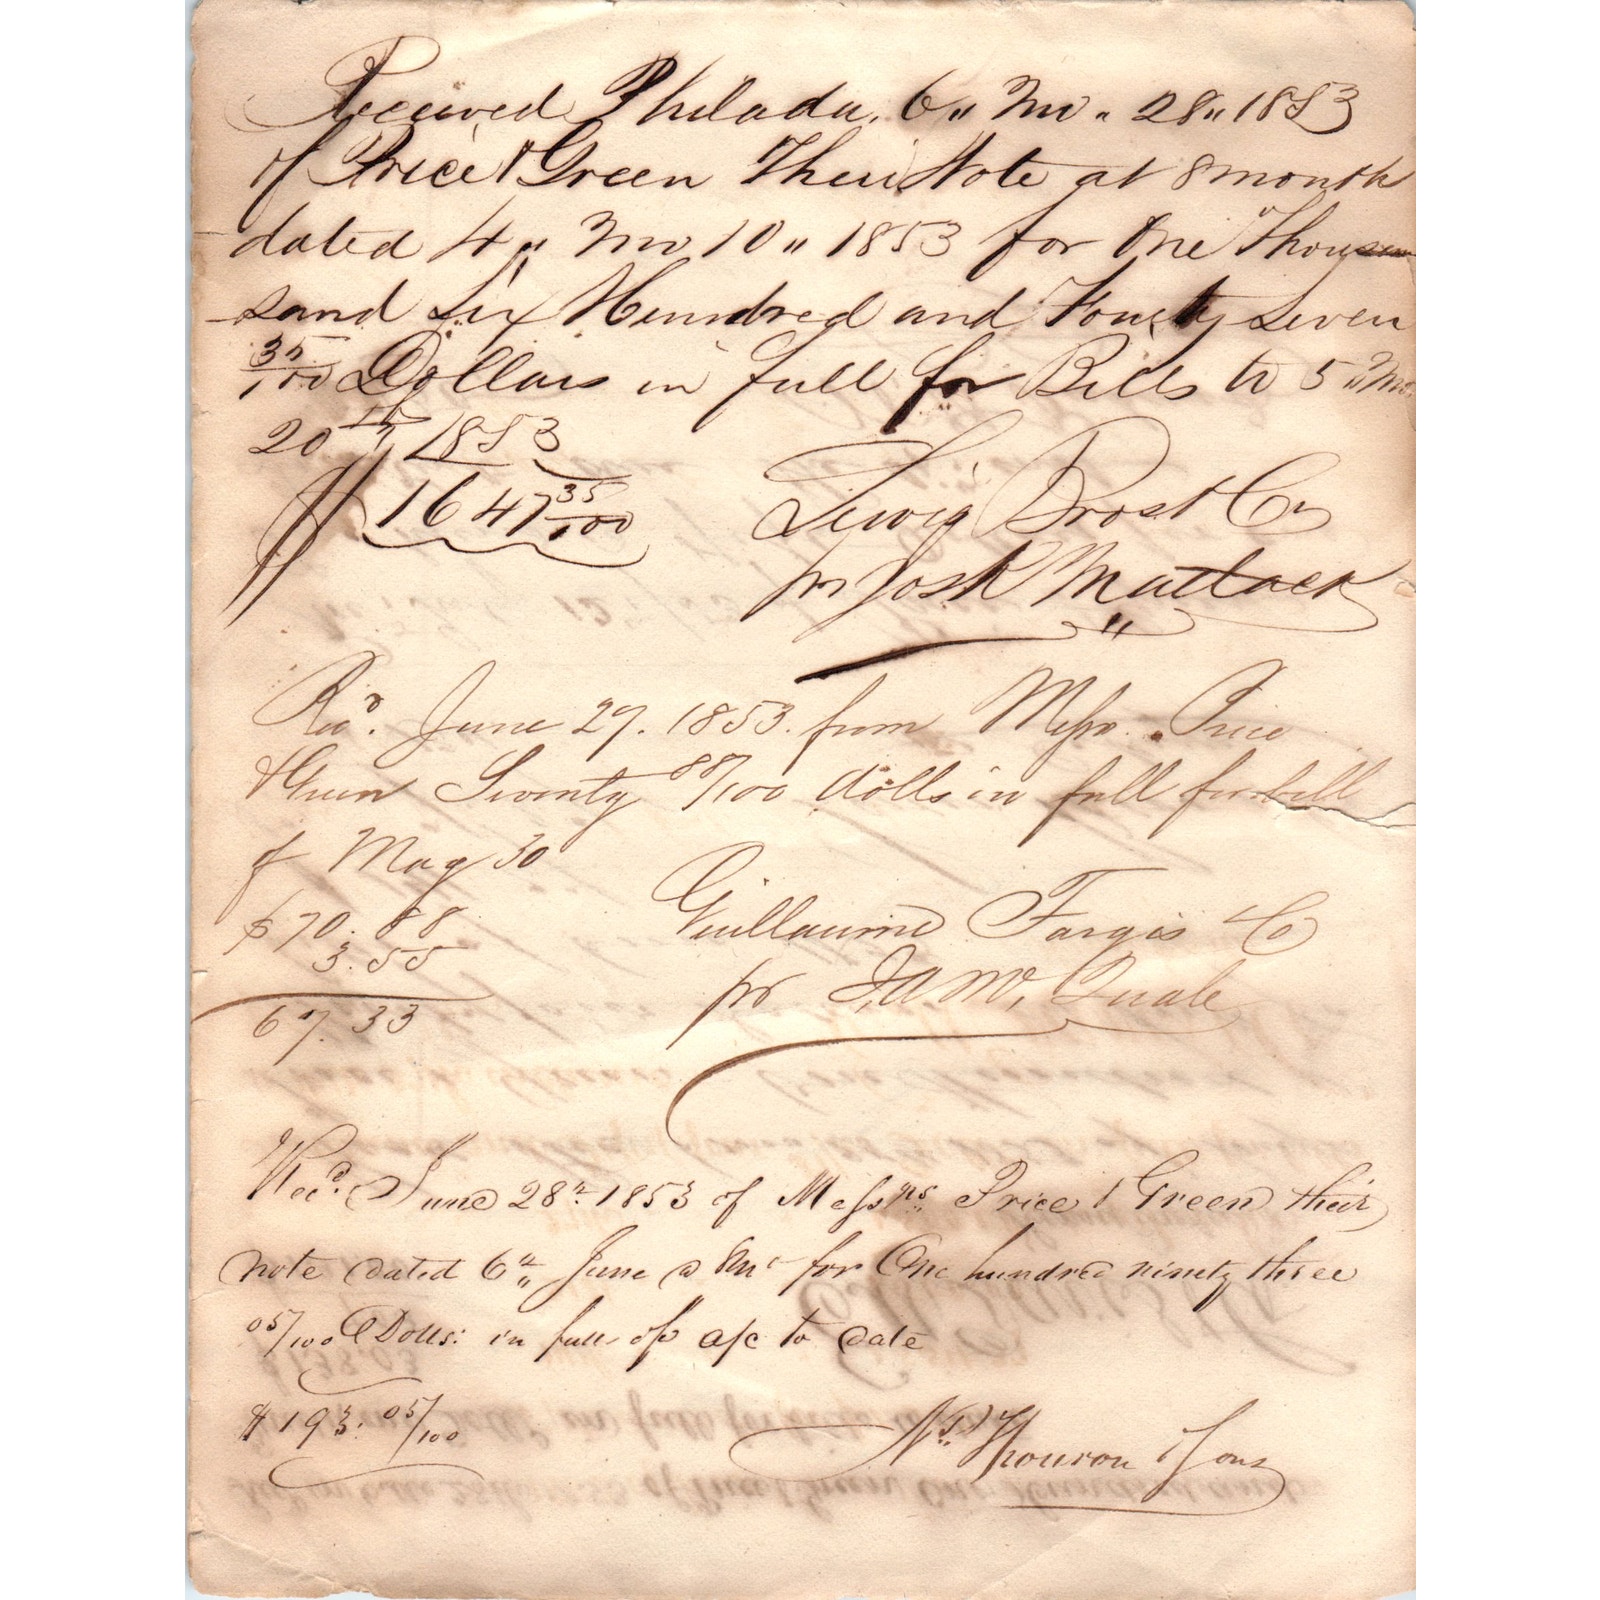 Received Philada. 6" Mo " 28" 1853
of Price & Green Their Note at 8 month
dated 4" Mo 10" 1853 for One Thou
sand Six Hundred and Fourty Seven
35/100 Dollars in full for Bills to 5" Mo.
20th 1853
$ 1647 35/100
Lewis Brost & Co
pr Josh Matlack
Recd. June 29. 1853. from Messr. Price
& Green Seventy 88/100 dolls in full for bill
of May 30
$70.88
3.55
67.33
Guillaume Fargis & Co
pr J. A. Mc. Quale
Recd. June 28th 1853 of Messrs Price & Green their
note dated 6th June @ 8 mo for One hundred ninety three
05/100 Dolls: in full of a/c to date
$193.05/100
Ns. Thouron & Sons